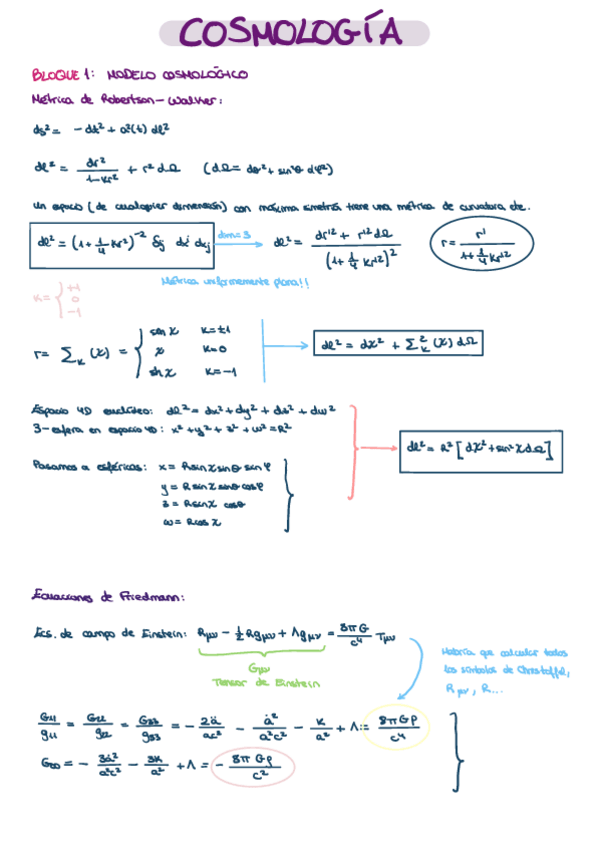 COSMOLOGÍA
BLOQUE 1: MODELO COSMOLÓGICO
Métrica de Robertson-Walker:
ds² = - dt² + a²(t) dl²
dl² = dr²/(1-kr²) + r² dΩ (dΩ = dθ² + sin²θ dφ²)
Un espacio (de cualquier dimensión) con máxima simetría tiene una métrica de curvatura cte.
dl² = (1 + 1/4 kr²)⁻² δij dxi dxj dim=3 dl² = (dr'² + r'² dΩ)/(1 + 1/4 kr'²)² r = r'/(1 + 1/4 kr'²)
Métrica uniformemente plana!!
k = { +1 0 -1
r = Σk (χ) = { sen χ k=+1
χ k=0
sh χ k=-1
dl² = dχ² + Σ²k (χ) dΩ
Espacio 4D euclídeo: dl² = dx² + dy² + dz² + dw²
3-esfera en espacio 4D: x² + y² + z² + w² = R²
dl² = R² [dχ² + sin² χ dΩ]
Pasamos a esféricas: x = R sin χ sin θ sin φ
y = R sin χ sin θ cos φ
z = R sin χ cos θ
w = R cos χ
Ecuaciones de Friedmann:
Ecs. de campo de Einstein: Rμν - 1/2 R gμν + Λgμν = 8πG/c⁴ Tμν
Gμν
Tensor de Einstein
Habría que calcular todos
los símbolos de Christoffel,
Rμν, R...
G11/g11 = G22/g22 = G33/g33 = - 2ä/ac² - ȧ²/a²c² - k/a² + Λ = 8πGp/c⁴
G00 = - 3ȧ²/a²c² - 3k/a² + Λ = - 8πGρ/c²